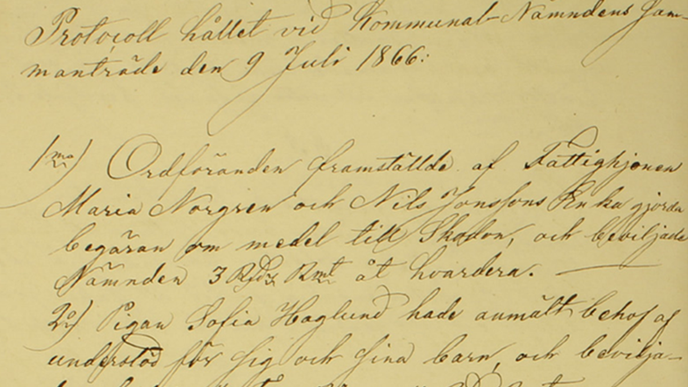 Protocoll hållet vid Kommunal-Nämndens Sam-
manträde den 9 Juli 1866:
1mo) Ordföranden framställde af Fattighjonen
Maria Norgren och Nils Jonssons Enka gjorda
begäran om medel till Skodon, och beviljade
Nämnden 3 Rdr Rmt åt hvardera. —
2o) Pigan Sofia Haglund hade anmält behof af
understöd för sig och sina barn, och bevilja-